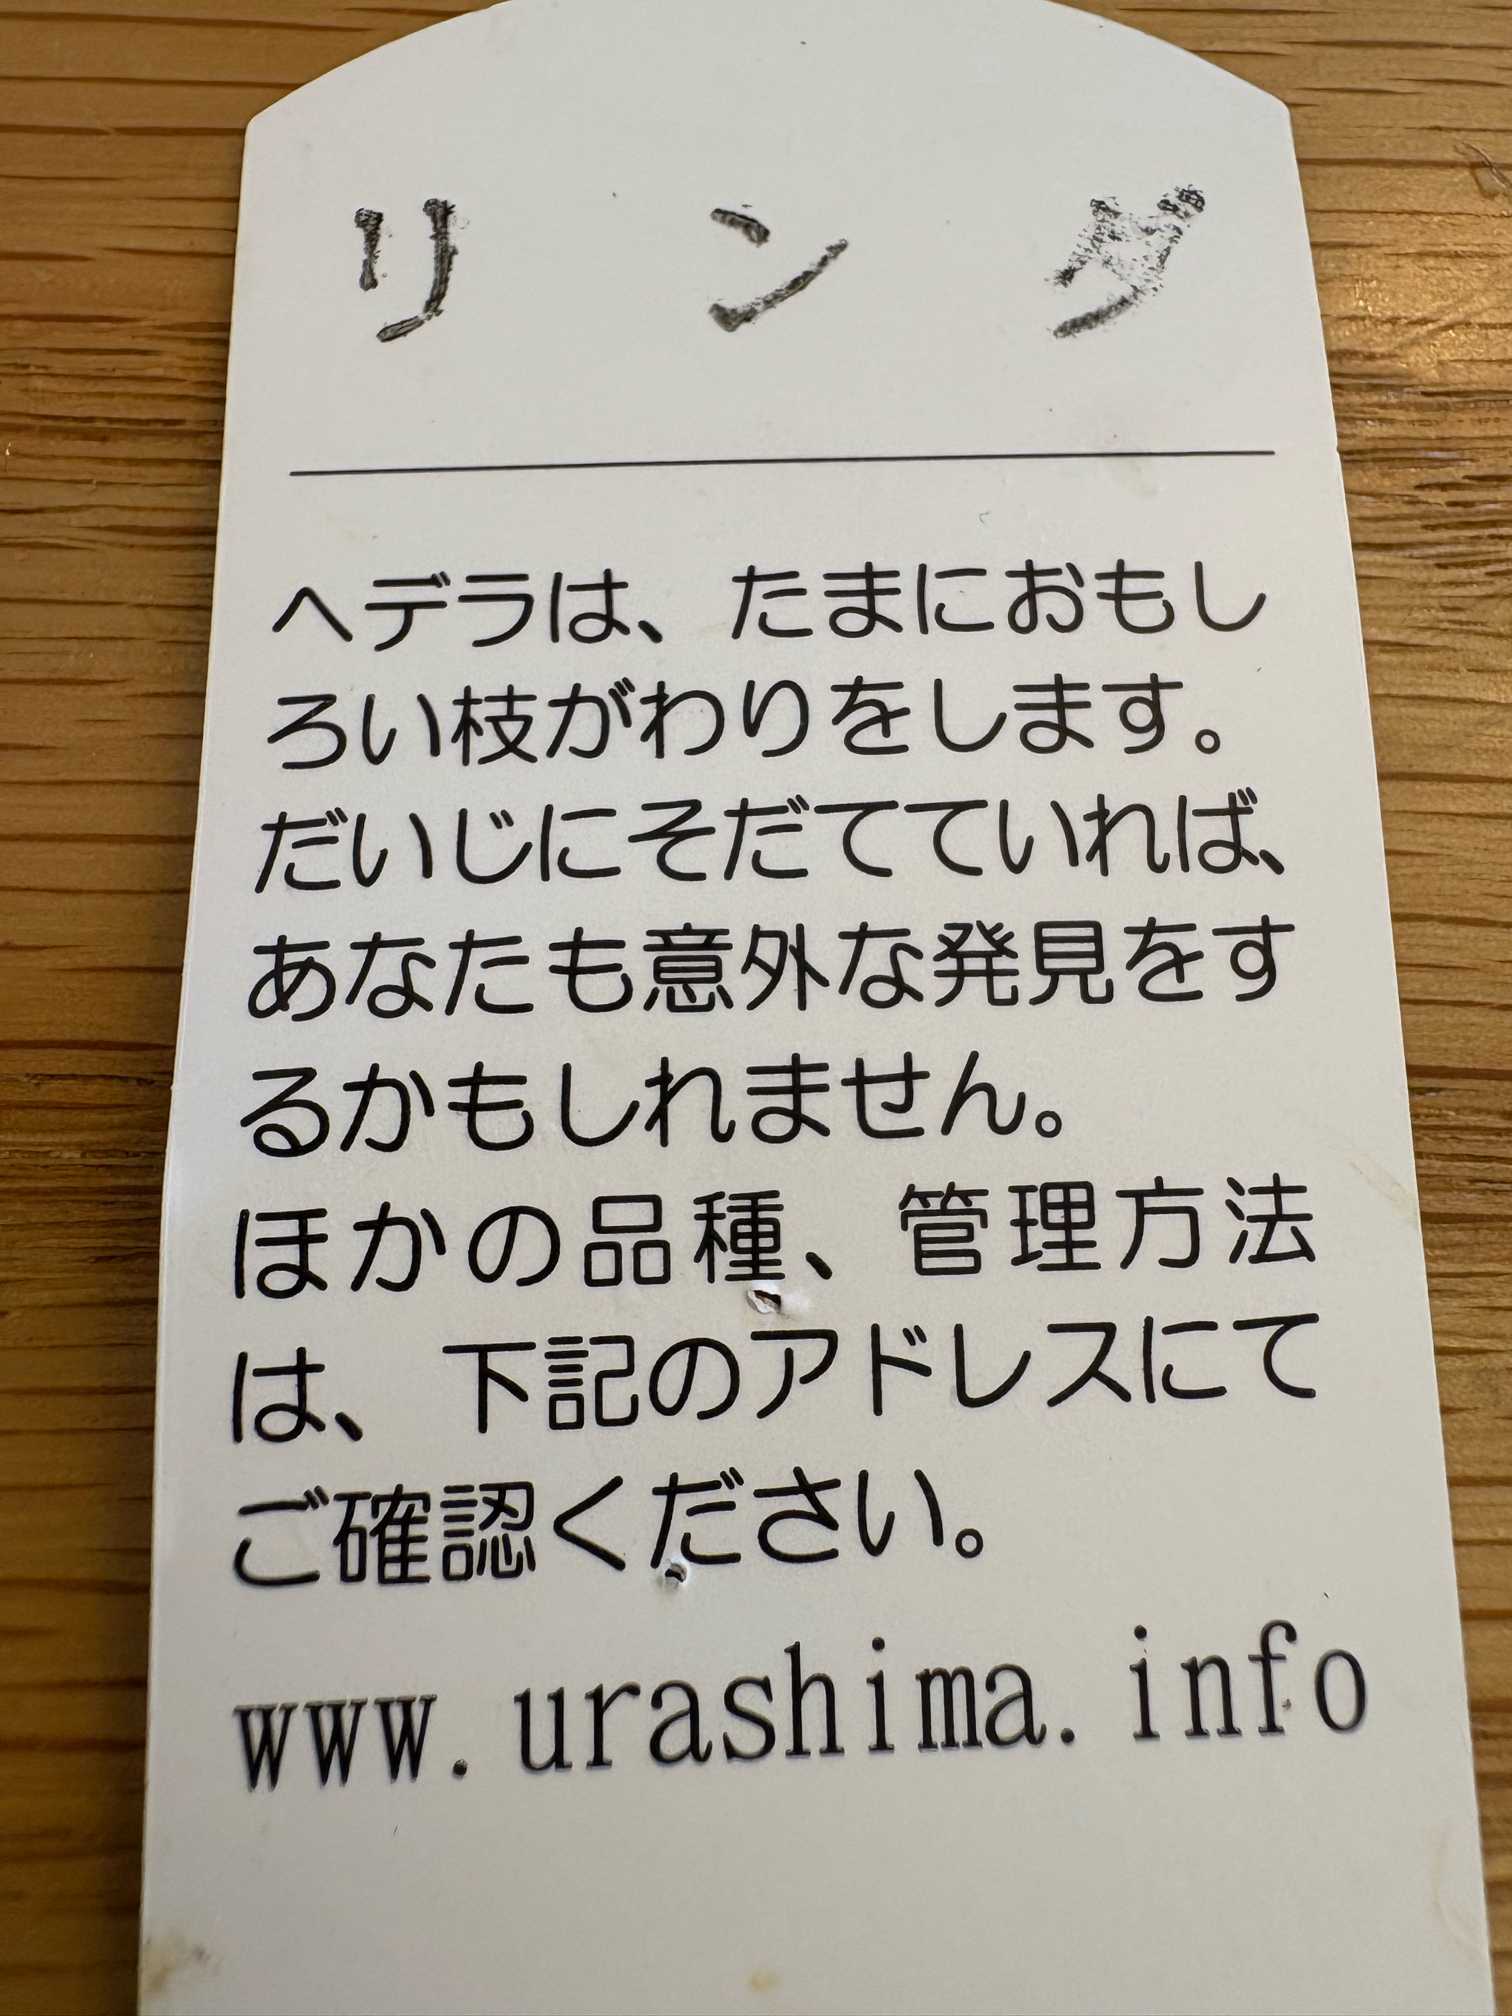 リンダ
ヘデラは、たまにおもし
ろい枝がわりをします。
だいじにそだてていれば、
あなたも意外な発見をす
るかもしれません。
ほかの品種、管理方法
は、下記のアドレスにて
ご確認ください。
www.urashima.info